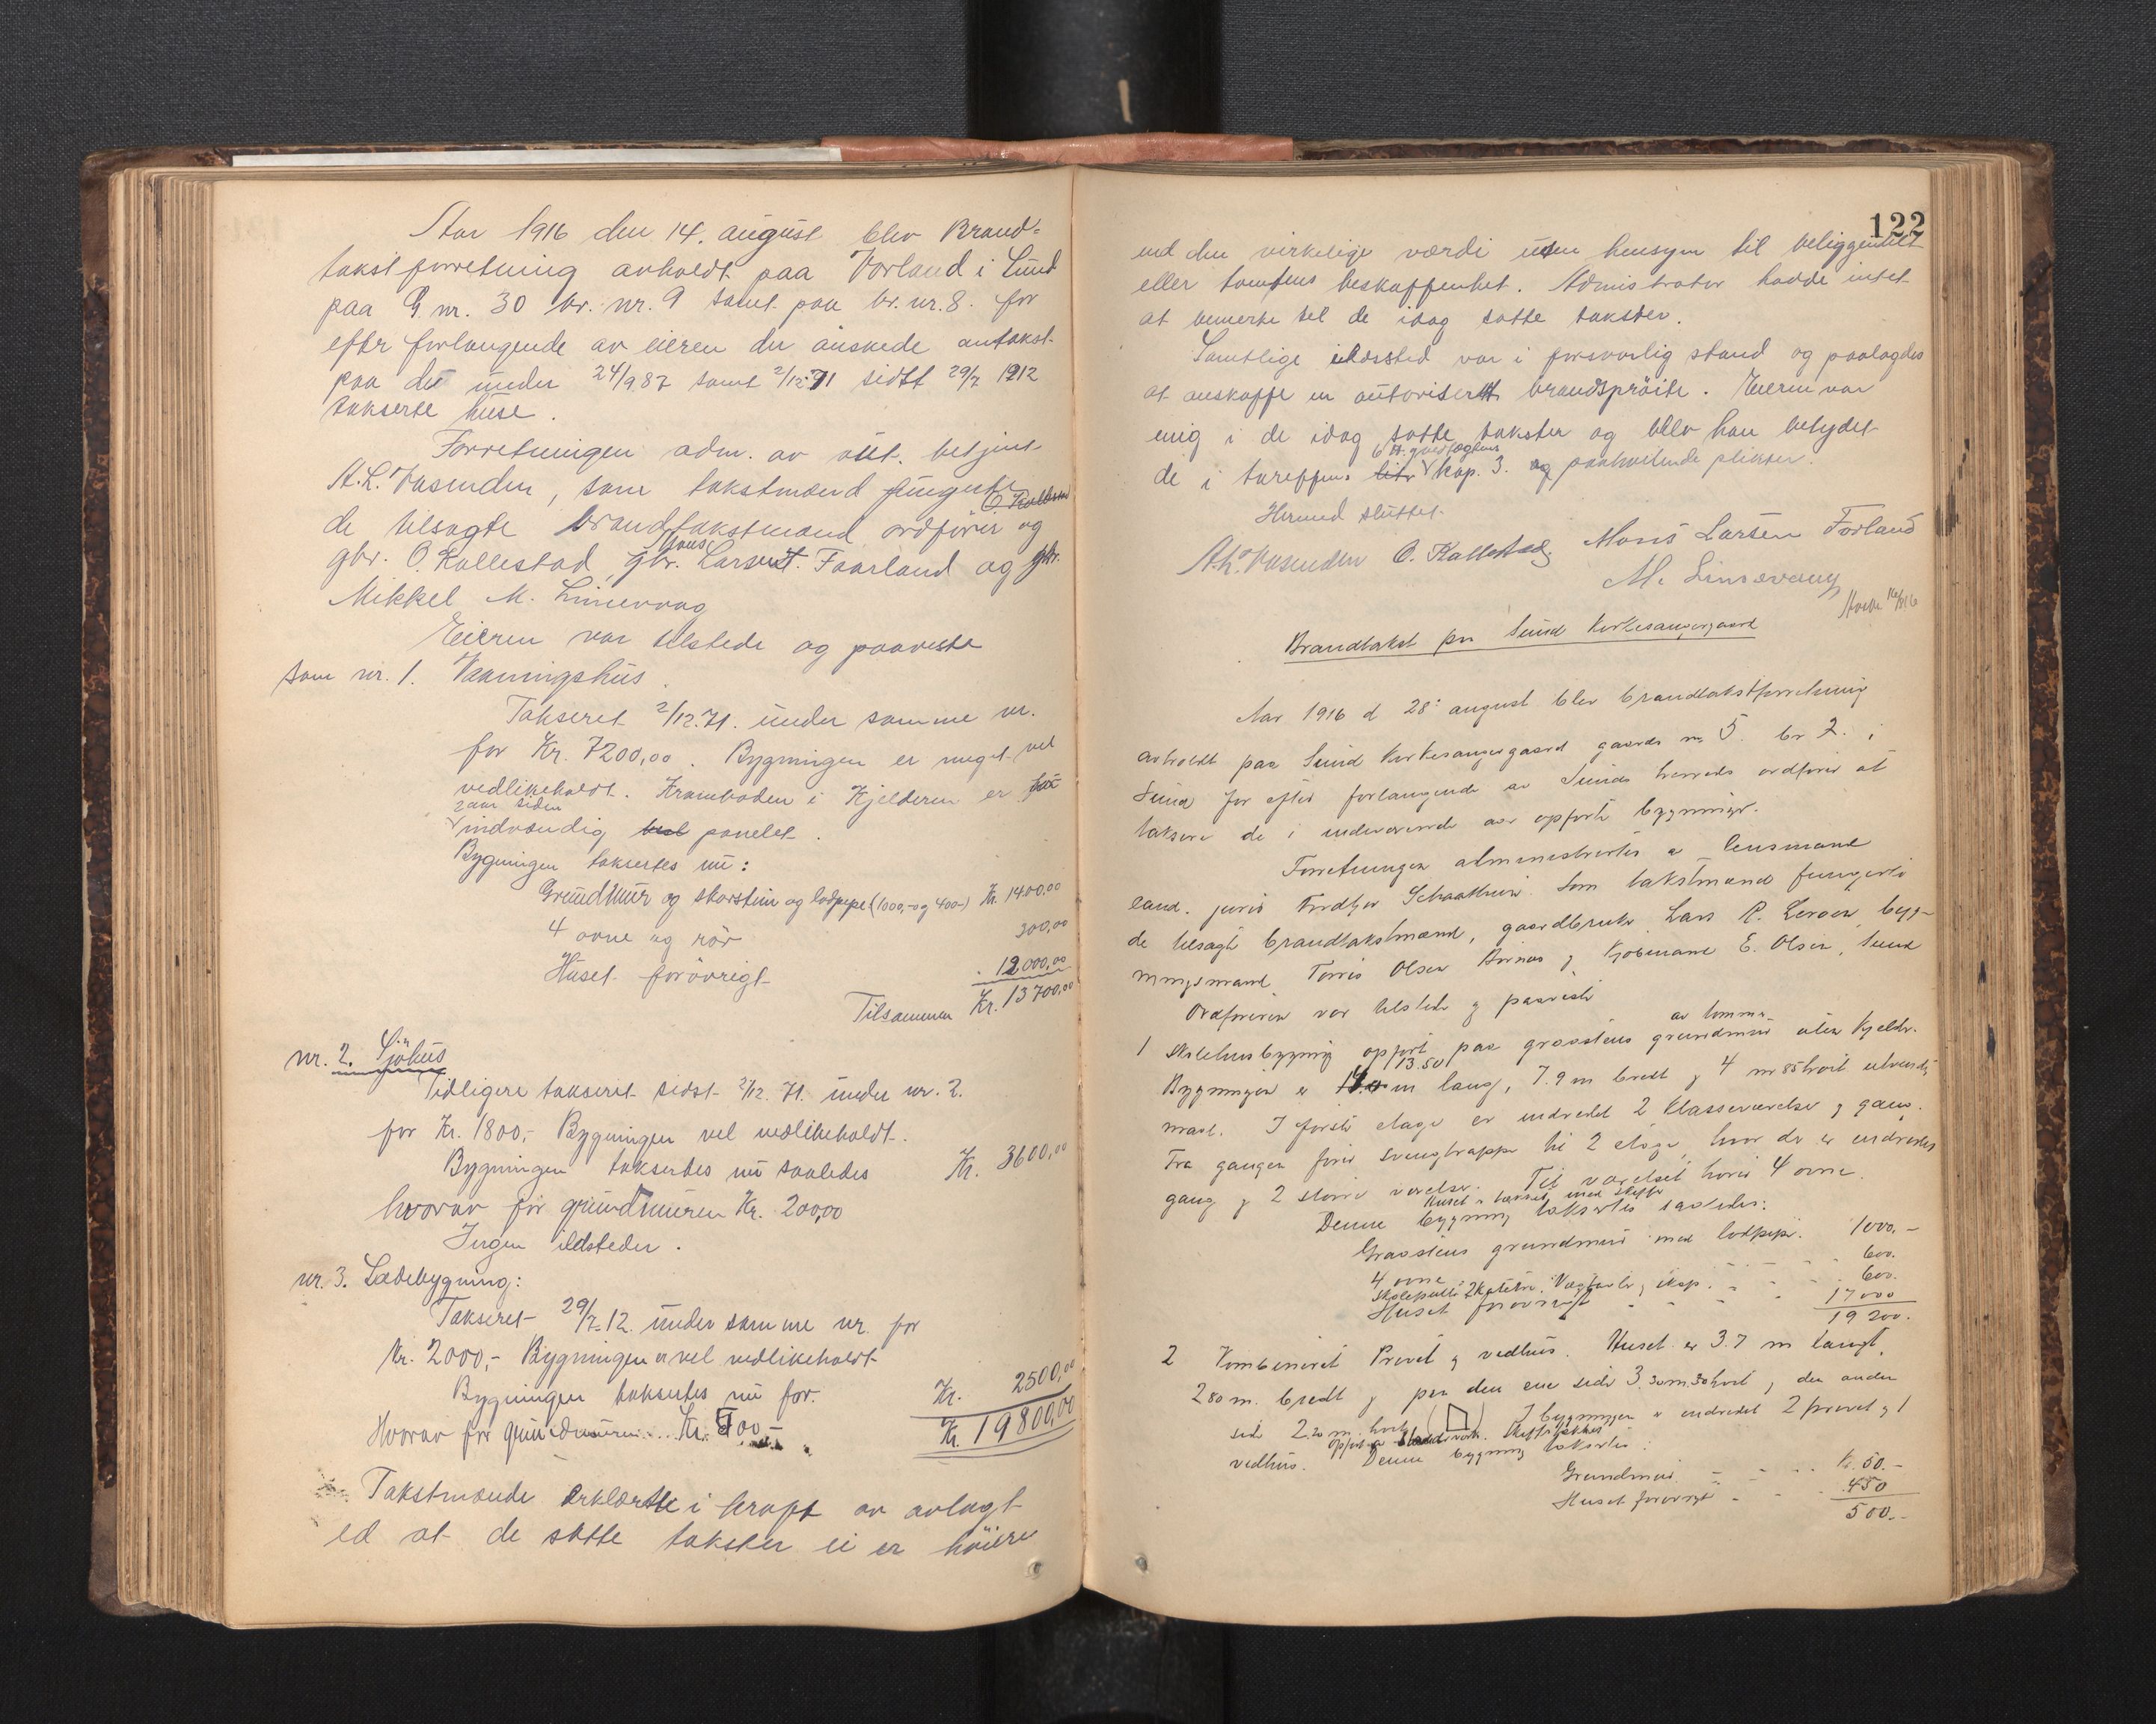 Aar 1916 den 14. august blev Brand-
takstforretning avholdt paa Vorland i Sund
paa G. nr. 30 br. nr. 9 samt paa br. nr. 8. for
efter forlangende av eieren der ønskede omtakst
paa de under 24/9 87 samt 2/12. 71 sidst 29/7 1912
takserte huse.
Forretningen adm. av aut. betjent
A.L. Vasenden, som takstmænd fungerte
de tilsagte brandtakstmænd ordfører og
gbr. O. Kallestad, gbr. Mons Larsen Faarland og gbr.
Mikkel M. Limevvag
Eieren var tilstede og paaviste
som nr. 1. Vaaningshus.
Takseret 2/12. 71. under samme nr.
for Kr. 7200,00. Bygningen er meget vel
vedlikeholdt. Kramboden i Kjelderen er for
2 aar siden
indvendig panelet.
Bygningen takseres nu:
Grundmur og skorstein og lodpipe (1000,- og 400-) Kr. 1400.00
4 ovne og rör 300,00
Huset forövrigt 12000,00
Tilsammen Kr. 13700,00
nr. 2. Sjöhus
Tidligere takseret sidst 2/12. 71. under nr. 2.
for Kr. 1800,- Bygningen vel vedlikeholdt.
Bygningen takseres nu saaledes Kr. 3600,00
hvorav for grundmuren Kr. 200,00
Ingen ildsteder.
nr. 3. Ladebygning:
Takseret 29/7-12. under samme nr. for
Kr. 2000,- Bygningen er vel vedlikeholdt
Bygningen takseres nu for. Kr. 2500,00
Hvorav for grundmuren... Kr. 500,- Kr. 19800,00
Takstmænde erklærte i kraft av avlagt
ed at de satte takster ei er höiere
122
end den virkelige værdi uten hensyn til beliggenhet
eller tomtens beskaffenhet. Administrator hadde intet
at bemerke til de idag satte takster.
Samtlige ildssted var i forsvarlig stand og paalagdes
at anskaffe en autorisert brandspröite. Eieren var
enig i de idag satte takster og blev han betydet
de i tareffens kap. 3. og paahvilende plikter.
Hermed sluttet.
A.L. Vasenden O. Kallestad, Mons Larsen Forland
M. Limevvang
Brandtakst paa Sund Kirkesangergaard
Aar 1916 d 28: august blev brandtakstforretning
avholdt paa Sund Kirkesangergaard gaards nr 5. br 2. i
Sund for efter forlangende av Sunds herreds ordfører at
taksere de i indeværende aar opførte bygninger.
Forretningen administrertes av lensmand
cand. juris Fredtjov Schaathun. Som takstmænd fungerte
de tilsagte brandtakstmænd, gaardbruker Lars R. Leroen byg-
ningsmand Torris Olsen og Kjøbmand E. Olsen, Sund
Ordføreren var tilstede og paaviste
1 Skolehusbygning opført paa graastens grundmur av tømmer uten kjelder.
Bygningen er 13.50 m lang, 7.9 m bredt og 4 m 85 høit utvendig
maal. I første etage er indredet 2 klasseværelser og gang.
Fra gangen fører svengtrappe til 2 etage, hvor der er indredet
gang og 2 større værelser. Til værelset hører 4 ovne.
Huset er tækket med skiffer
Denne bygning takseres saaledes:
Graastens grundmur med lodpipe. 1000,-
4 ovne 600.
Skolepulter 2 katetre, Vægtavle, skap. 600.
Huset forøvrigt 17000
19200.
2 Kombineret Privet og vedhus. Huset er 3.7 m langt,
2 80 m. bredt og paa den ene side 3.30 m. høit, den anden
side 2.20 m. høit. I bygningen er indredet 2 privet og 1
vedhus. Denne bygning takseres:
Grundmur Kr. 50.-
Huset forøvrigt 450
500.-